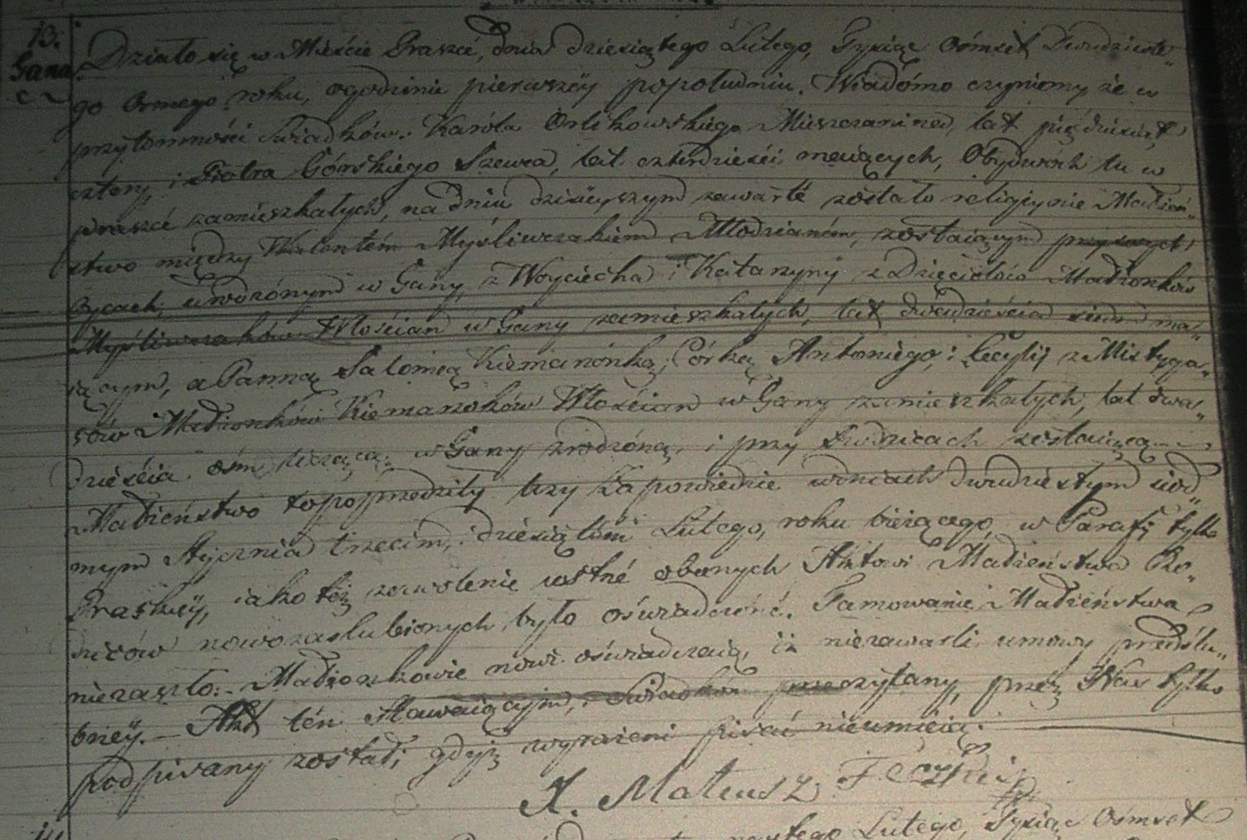 13.
Gana
Działo się w Mieście Praszce, dnia dziesiątego Lutego, Tysiąc Ośmset Dwudzieste„
go Osmego roku, ogodzinie pierwszéy popołudniu. Wiadomo czyniemy że w
przytomności Swiadków. Karóla Orlikowskiego Mieszczanina, lat pięćdziesiąt
cztery, i Piotra Górskiego Szewca, lat czterdzieści maiących, Obydwóch tu w
Praszcé zamieszkałych, na dniu dzisieyszym zawarté zostało religiynie Małżeń„
stwo między Walentém Myśliwczakiem Młodzianém, zostaiącym przy
Oycach, urodzónym w Gany, z Woyciecha i Katarzyny z Dzięciołów Małżonków
Myśliwczaków Włościan w Gany zamieszkałych, lat dwadzieścia siedm ma„
iącym, a Panną Salomeą Kiemanónką, Córką Antoniego, i Cecylij z Mistyga„
sów Małżonków Włościan w Gany zamieszkałych, lat dwa„
dzieścia ośm liczącą, w Gany zrodzóną, i przy Rodzicach zostaiącą.
Małżeństwo to poprzedziły trzy Zapowiedzie w dniach dwudziestym siód„
mym Stycznia trzecim, i dziesiątém Lutego, roku bieżącego, w Parafij tylko
Praskiéy, iako też zezwolenie ustné obecnych Aktowi Małżeństwa Ro„
dziców nowozaslubionych było oświadczoné. Tamowanie Małżeństwa
niezaszło. Małżonkowie nowi oświadczaią, iż niezawarli umowy przedślu„
bnéy. Akt tén Stawaiącym, i Swiadkóm przeczytany, przez Nas tylko
podpisany został, gdyż wyrażeni pisać nieumieią.
X. Mateusz
Lutego, Tysiąc Ośmset